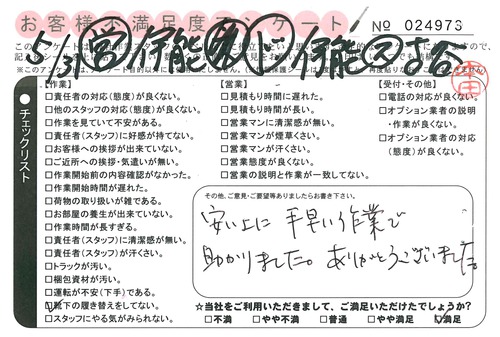 お客様不満足度アンケート
№ 024973
チェックリスト
【作業】
□責任者の対応(態度)が良くない。
□他のスタッフの対応(態度)が良くない。
□作業を見ていて不安がある。
□責任者(スタッフ)に好感が持てない。
□お客様への挨拶が出来ていない。
□ご近所への挨拶・気遣いが無い。
□作業開始前の内容確認がなかった。
□作業開始時間が遅れた。
□荷物の取り扱いが雑である。
□お部屋の養生が出来ていない。
□作業時間が長すぎる。
□責任者(スタッフ)に清潔感が無い。
□責任者(スタッフ)が汗くさい。
□トラックが汚い。
□梱包資材が汚い。
□運転が不安(下手)である。
靴下の履き替えをしてない。
□スタッフにやる気がみられない。
【営業】
□見積もり時間に遅れた。
□見積もり時間が長い。
□営業マンに清潔感が無い。
□営業マンが煙草くさい。
□営業マンが汗くさい。
□営業態度が良くない。
□営業の説明と作業が一致してない。
【受付・その他】
□電話の対応が良くない。
□オプション業者の説明
・作業が良くない。
□オプション業者の対応
(態度)が良くない。
その他、ご意見・ご要望等ありましたらお書き下さい。
安い上に手早い作業で
助かりました。ありがとうございました。
☆当社をご利用いただきまして、ご満足いただけたでしょうか?
□不満 □やや不満 □普通 □やや満足 ☑満足